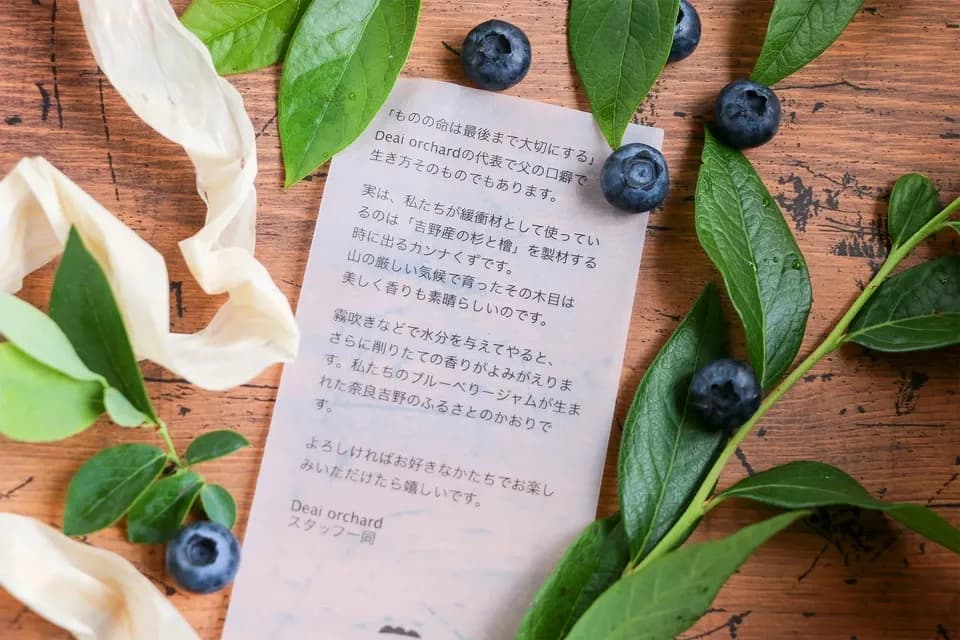 「ものの命は最後まで大切にする」
Deai orchardの代表で父の口癖で
生き方そのものでもあります。
実は、私たちが緩衝材として使ってい
るのは「吉野産の杉と檜」を製材する
時に出るカンナくずです。
山の厳しい気候で育ったその木目は
美しく香りも素晴らしいのです。
霧吹きなどで水分を与えてやると、
さらに削りたての香りがよみがえりま
す。私たちのブルーベリージャムが生ま
れた奈良吉野のふるさとのかおりで
す。
よろしければお好きなかたちでお楽し
みいただけたら嬉しいです。
Deai orchard
スタッフ一同